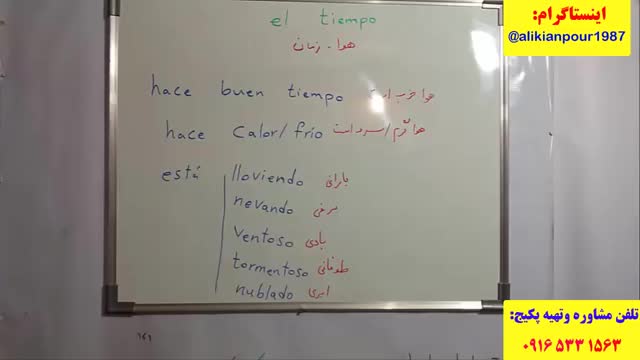 اینستاگرام:
@alikianpour1987
el tiempo
هوا - زمان
hace buen tiempo هوا خوب است
hace calor/frio هوا گرم/سرد است
está lloviendo بارانی
nevando برفی
ventoso بادی
tormentoso طوفانی
nublado ابری
۱۶۱
تلفن مشاوره وتهیه پکیج:
۰۹۱۶ ۵۳۳ ۱۵۶۳